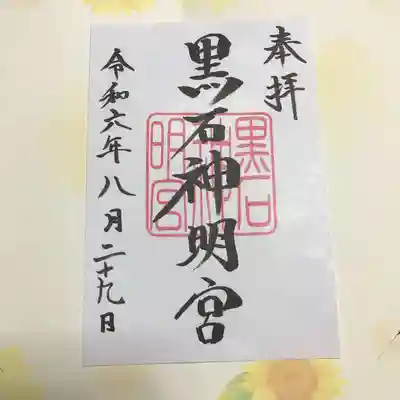 奉拝
黒石神明宮
黒石神明宮
令和六年八月二十九日